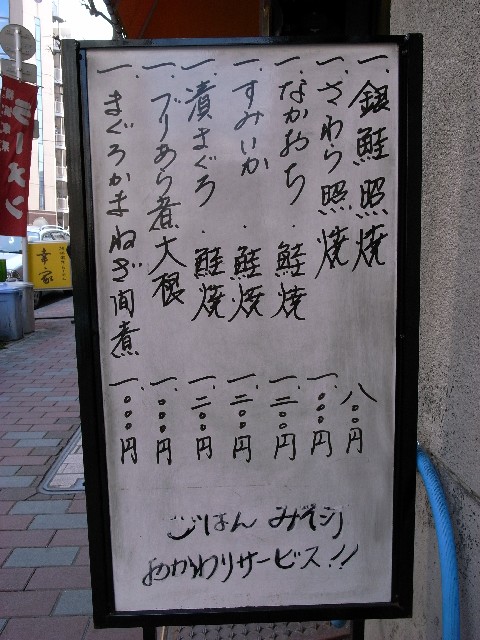 一.銀鮭照焼 八〇〇円
一.さわら照焼 一.〇〇〇円
一.なかおち.鮭焼 一.二〇〇円
一.すみいか.鮭焼 一.二〇〇円
一.漬まぐろ.鮭焼 一.二〇〇円
一.ぶりあら煮大根 一.〇〇〇円
一.まぐろかまねぎ間煮 一.〇〇〇円
ごはん みそ汁
おかわりサービス!!
ラーメン
幸家